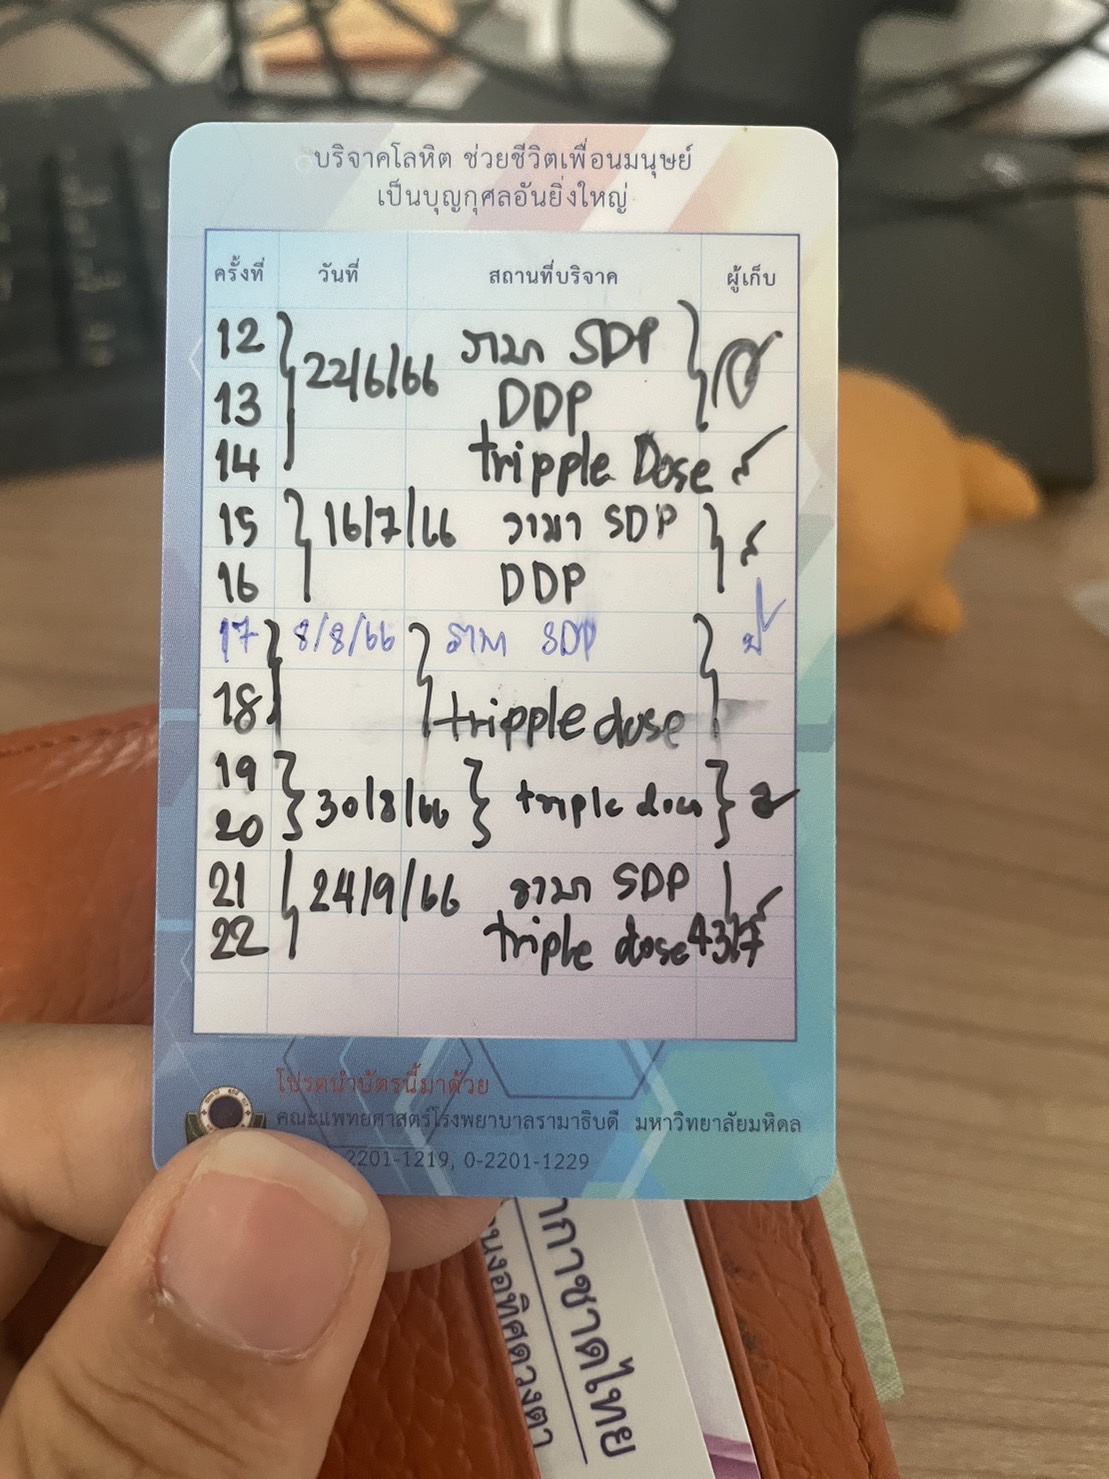 บริจาคโลหิต ช่วยชีวิตเพื่อนมนุษย์
เป็นบุญกุศลอันยิ่งใหญ่
ครั้งที่ วันที่ สถานที่บริจาค ผู้เก็บ
12 22/6/66 รามา SDP
13 DDP
14 tripple Dose
15 16/7/66 รามา SDP
16 DDP
17 8/8/66 รามา SDP
18 tripple dose
19 30/8/66 triple
20
21 24/9/66 รามา SDP
22 triple dose
โปรดนำบัตรนี้มาด้วย
คณะแพทยศาสตร์โรงพยาบาลรามาธิบดี มหาวิทยาลัยมหิดล
2201-1219, 0-2201-1229
กาชาดไทย
อุทิศดวงตา